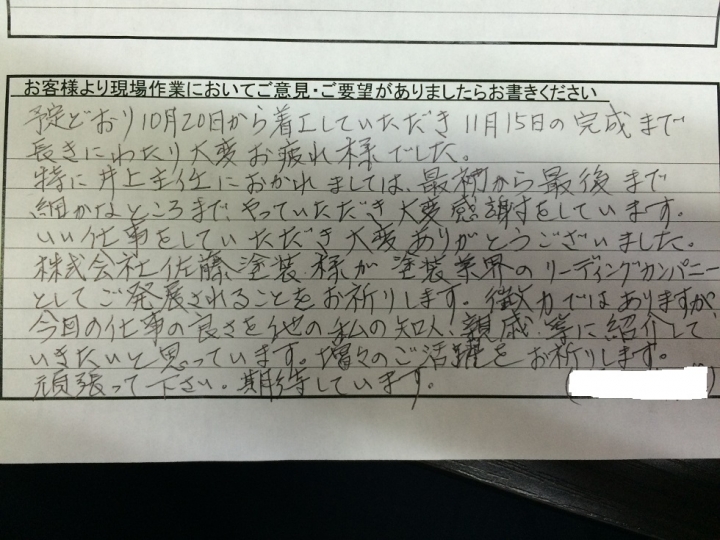 お客様より現場作業においてご意見・ご要望がありましたらお書きください
予定どおり10月20日から着工していただき11月15日の完成まで
長きにわたり大変お疲れ様でした。
特に井上主任におかれましては、最初から最後まで
細かなところまで、やっていただき大変感謝をしています。
いい仕事をしていただき大変ありがとうございました。
株式会社佐藤塗装様が塗装業界のリーディングカンパニー
としてご発展されることをお祈りします。微力ではありますが、
今回の仕事の良さを他の私の知人、親戚、等に紹介して
いきたいと思っています。増々のご活躍をお祈りします。
頑張って下さい。期待しています。